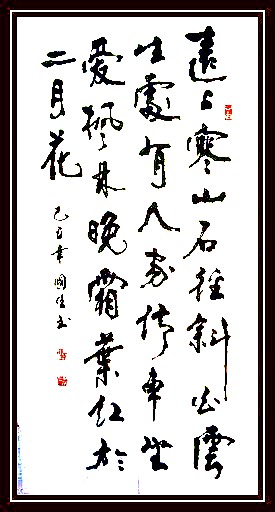 遠上寒山石徑斜白雲
生處有人家停車坐
愛楓林晚霜葉紅於
二月花
己丑年國生书